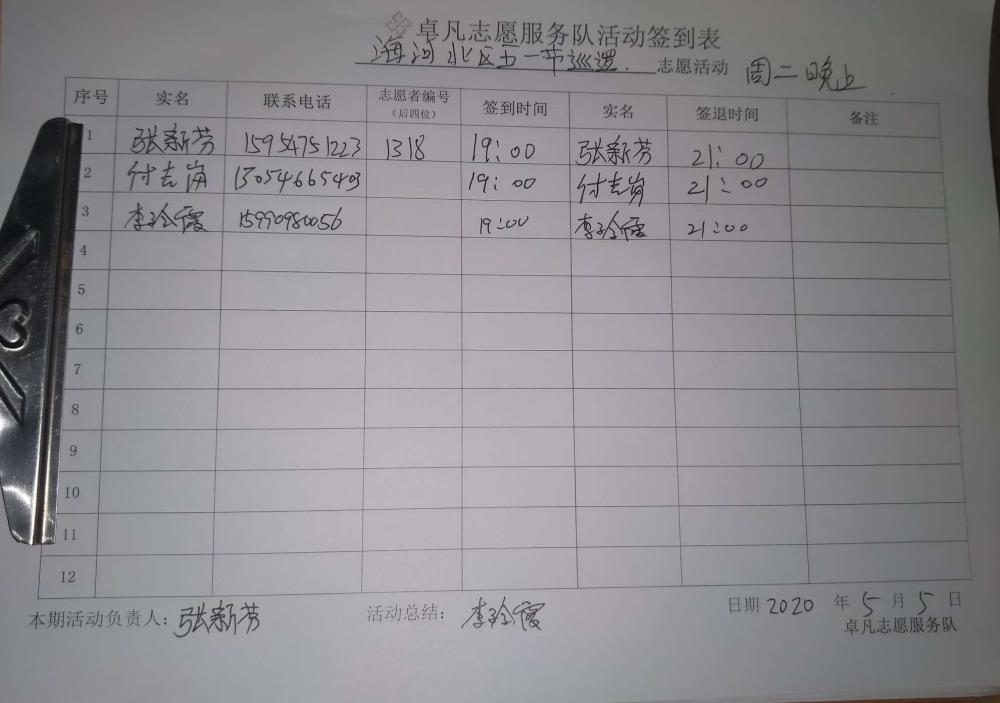 卓凡志愿服务队活动签到表
海河北区五一节巡逻. 志愿活动 周二晚上
序号 实名 联系电话 志愿者编号（后四位） 签到时间 实名 签退时间 备注
1 张新芳 15954751223 1318 19:00 张新芳 21:00
2 付志岗 15054665403 19:00 付志岗 21:00
3 李玲霞 15990980056 19:00 李玲霞 21:00
4
5
6
7
8
9
10
11
12
本期活动负责人: 张新芳 活动总结: 李玲霞 日期 2020 年 5 月 5 日
卓凡志愿服务队